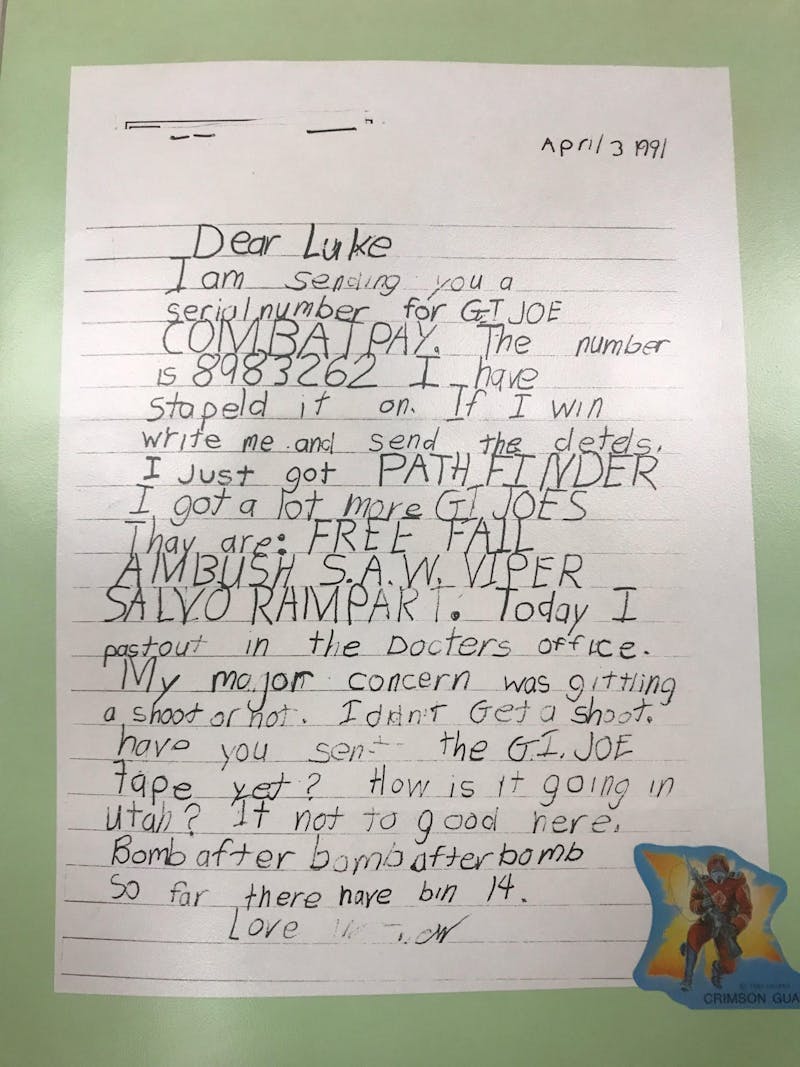 April 3 1991
Dear Luke
I am sending you a
serial number for GI JOE
COMBAT PAY. The number
is 8983262 I have
stapeld it on. If I win
write me and send the detels.
I Just got PATH FINDER
I got a lot more GI JOES
Thay are: FREE FAIL
AMBUSH S.A.W. VIPER
SALVO RAMPART. Today I
pastout in the Docters office.
My major concern was gittling
a shoot or not. I didn't Get a shoot.
have you sent the G.I. JOE
tape yet? How is it going in
Utah? It not to good here.
Bomb after bomb after bomb
So far there have bin 14.
Love
CRIMSON GUA